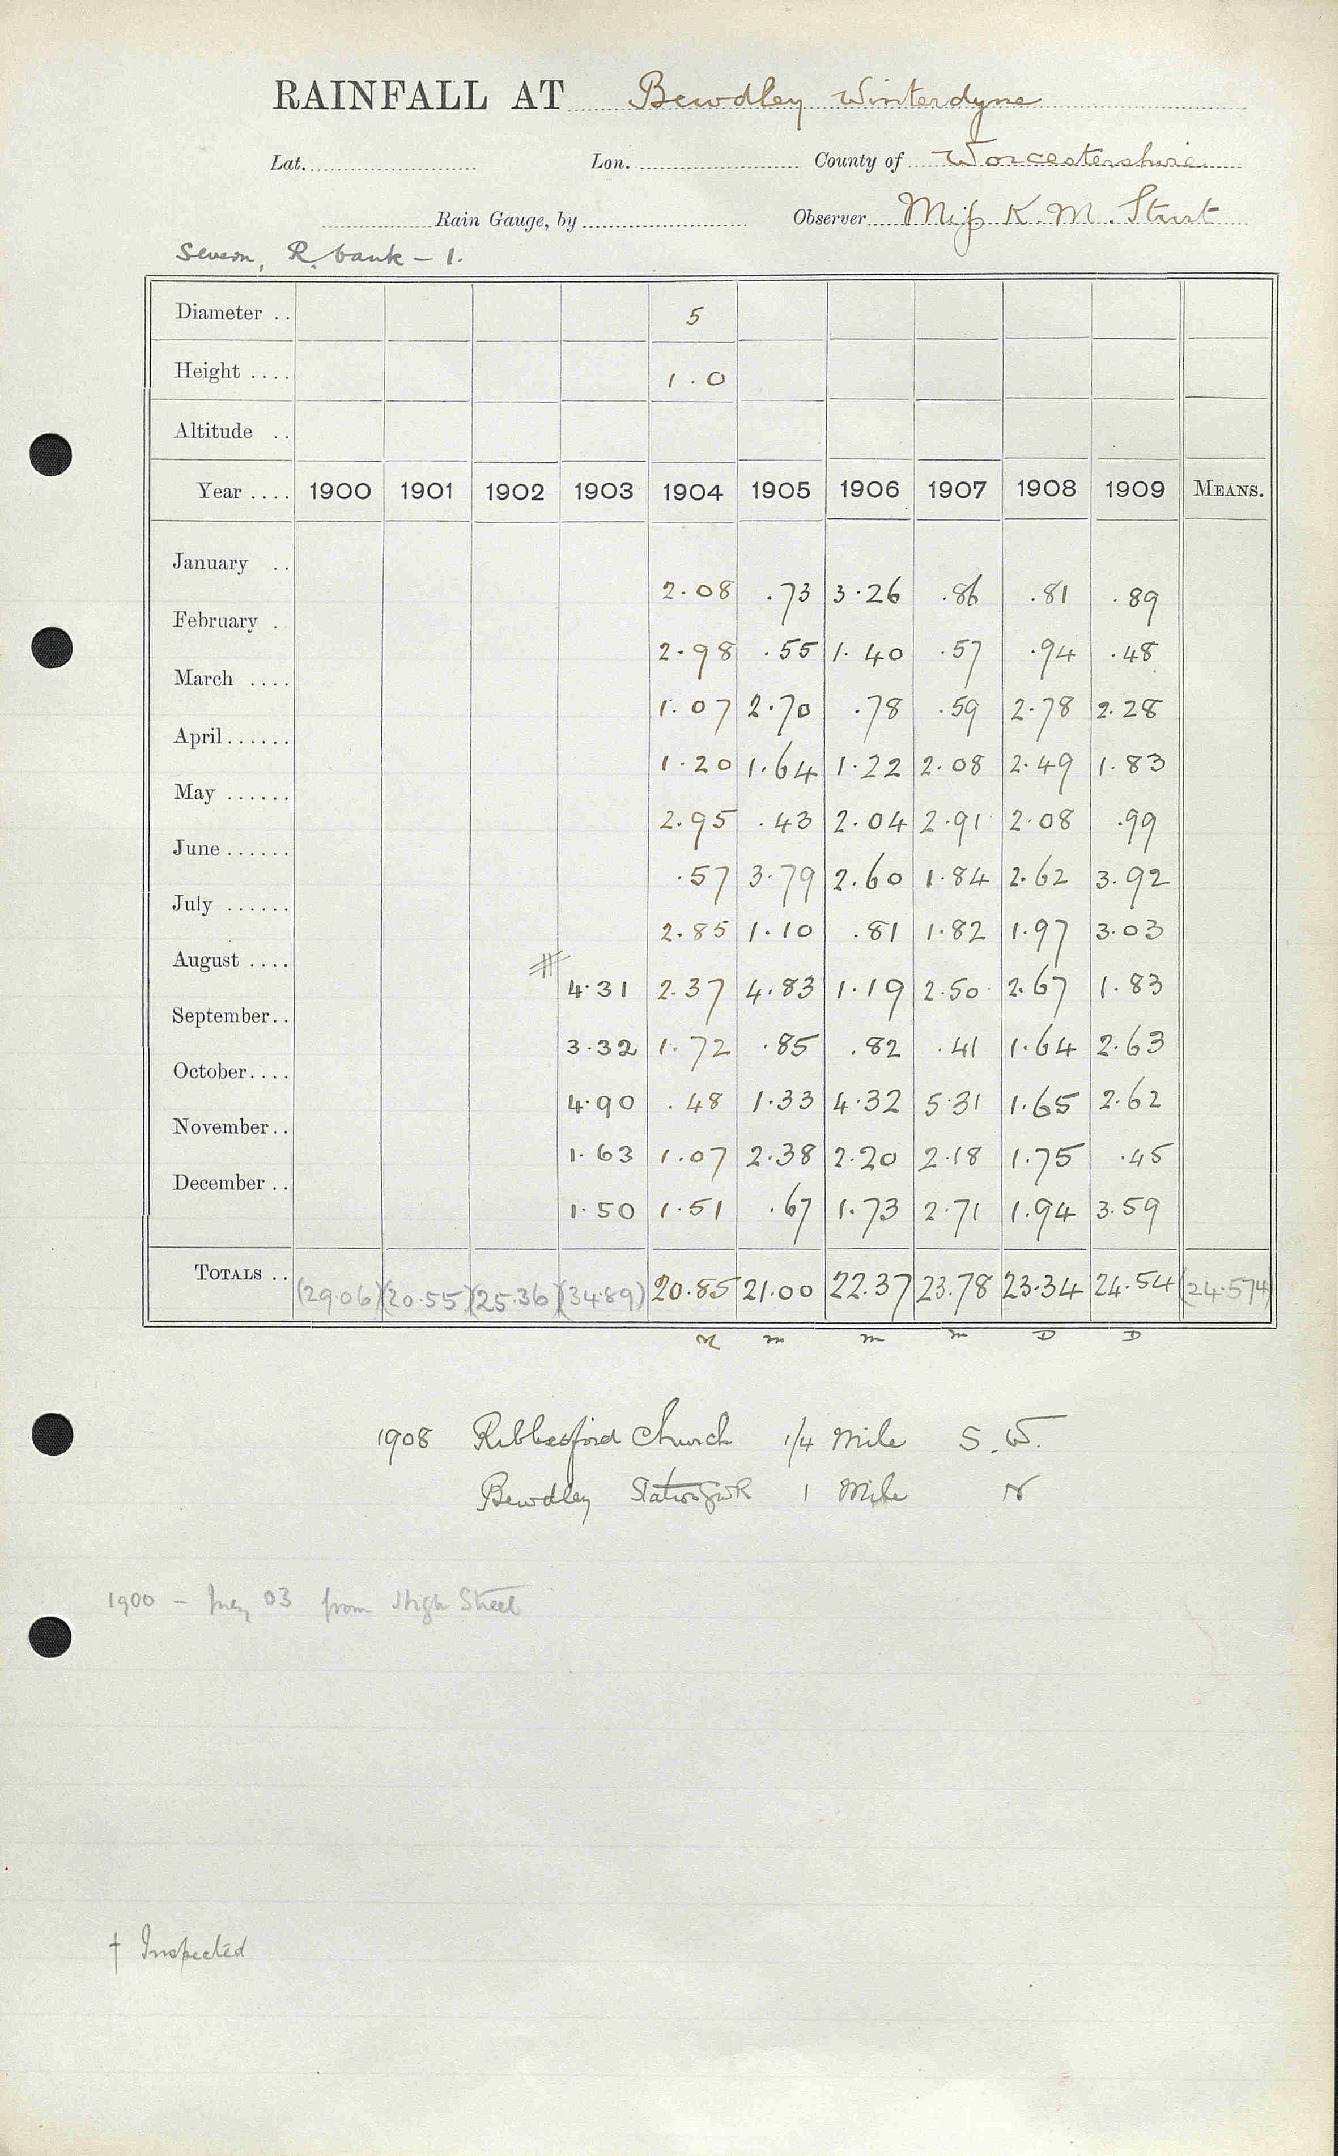 RAINFALL AT Bewdley Winterdyne
Lat. Lon. County of Worcestershire
Rain Gauge, by Observer Miss K. M. Strut
Severn, R. bank - 1.
Diameter .. 5
Height .... 1.0
Altitude ..
Year .... 1900 1901 1902 1903 1904 1905 1906 1907 1908 1909 MEANS.
January .. 2.08 .73 3.26 .86 .81 .89
February . 2.98 .55 1.40 .57 .94 .48
March .... 1.07 2.70 .78 .59 2.78 2.28
April...... 1.20 1.64 1.22 2.08 2.49 1.83
May ...... 2.95 .43 2.04 2.91 2.08 .99
June...... .57 3.79 2.60 1.84 2.62 3.92
July ...... 2.85 1.10 .81 1.82 1.97 3.03
August .... 4.31 2.37 4.83 1.19 2.50 2.67 1.83
September.. 3.32 1.72 .85 .82 .41 1.64 2.63
October.... 4.90 .48 1.33 4.32 5.31 1.65 2.62
November.. 1.63 1.07 2.38 2.20 2.18 1.75 .45
December .. 1.50 1.51 .67 1.73 2.71 1.94 3.59
TOTALS .. (29.06) (20.55) (25.36) (34.89) 20.85 21.00 22.37 23.78 23.34 24.54 (24.574)
m m m D D
1908 Ribbesford Church 1/4 Mile S.W.
Bewdley Station GWR 1 Mile N
1900 - July 03 from High Street
† Inspected